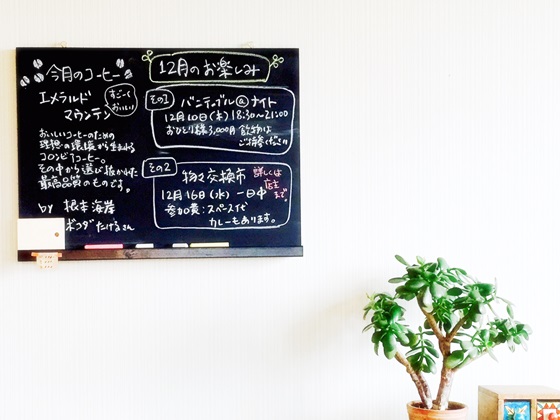 今月のコーヒー
エメラルド
マウンテン
すご〜く
おいしい!
おいしいコーヒーのための
理想の環境から生まれる
コロンビアコーヒー。
その中から選び抜かれた
最高品質のものです。
by 根本海岸
たけ さん
12月のお楽しみ
その1 バーテーブル@ナイト
12月10日(木) 18:30〜21:00
おひとり様3,000円 飲物は
ご持参ください
その2 物々交換市
詳しくは
店主
まで。
12月16日(水) 一日中
参加費:スペース代
カレーもあります。